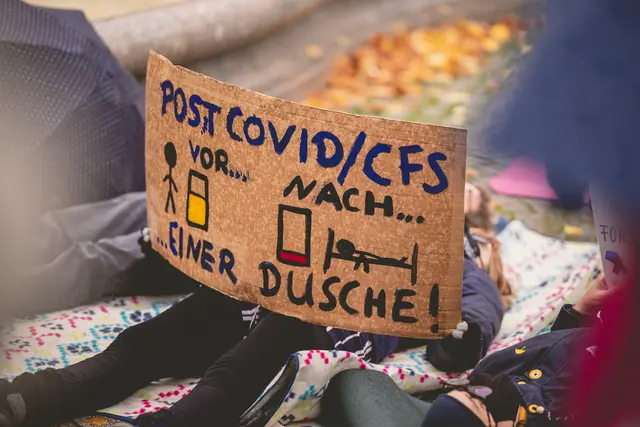 POST COVID/CFS
VOR... NACH...
...EINER DUSCHE!